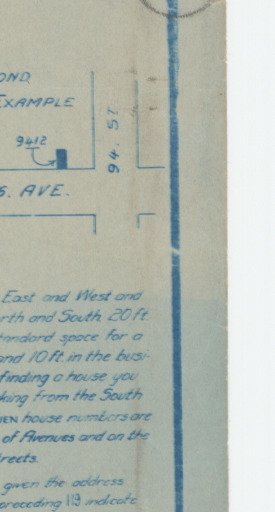 OND.
EXAMPLE
9412
94. ST
S. AVE.
East and West and
rth and South 20 ft.
tandard space for a
and 10 ft. in the busi-
finding a house you
king from the South
EVEN house numbers are
of Avenues and on the
reets.
given the address
preceding 119 indicate